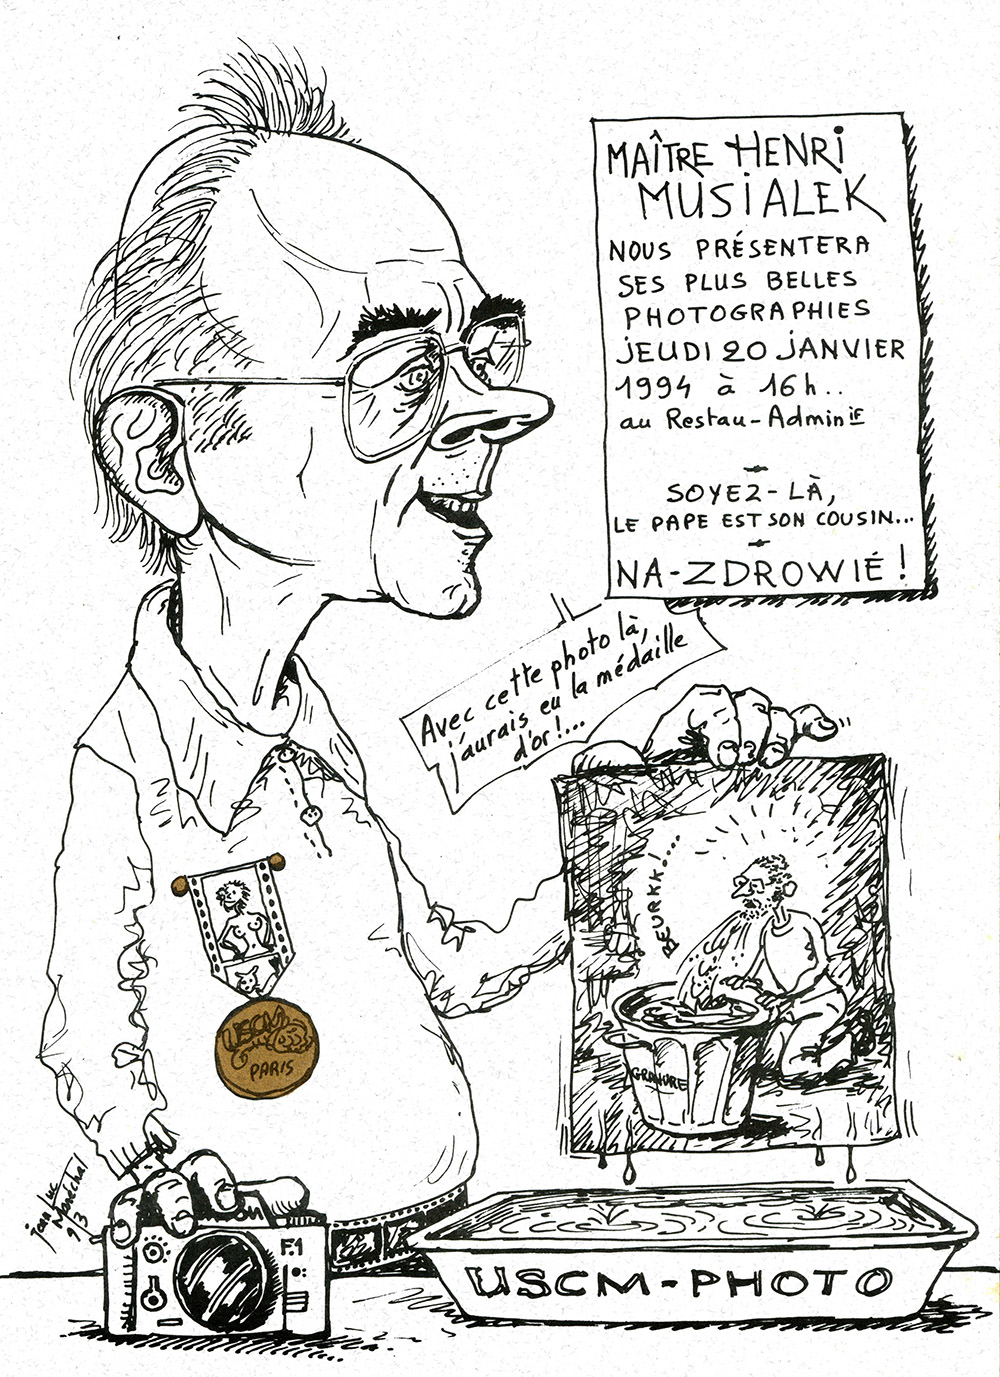 MAÎTRE HENRI
MUSIALEK
NOUS PRÉSENTERA
SES PLUS BELLES
PHOTOGRAPHIES
JEUDI 20 JANVIER
1994 à 16h..
au Restau-Admin IF
SOYEZ-LÀ,
LE PAPE EST SON COUSIN...
NA-ZDROWIÉ!
Avec cette photo là,
j'aurais eu la médaille
d'or!...
BEURKK!....
USCM
PARIS
jean luc
Maréchal
93
F.1
USCM-PHOTO